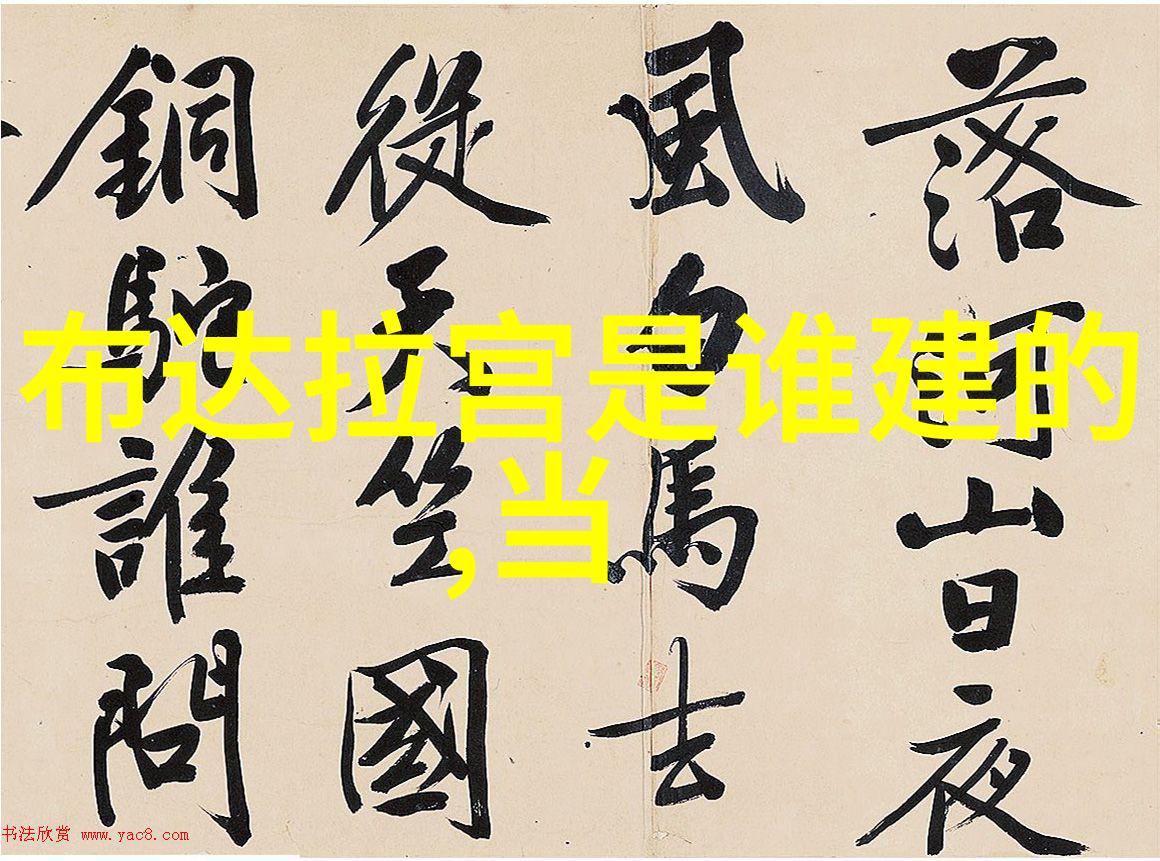 布达拉宫是谁建的
,当
落河山日夜
風白馬去
從天竺國
銅駝誰問
书法欣赏 www.yac8.com